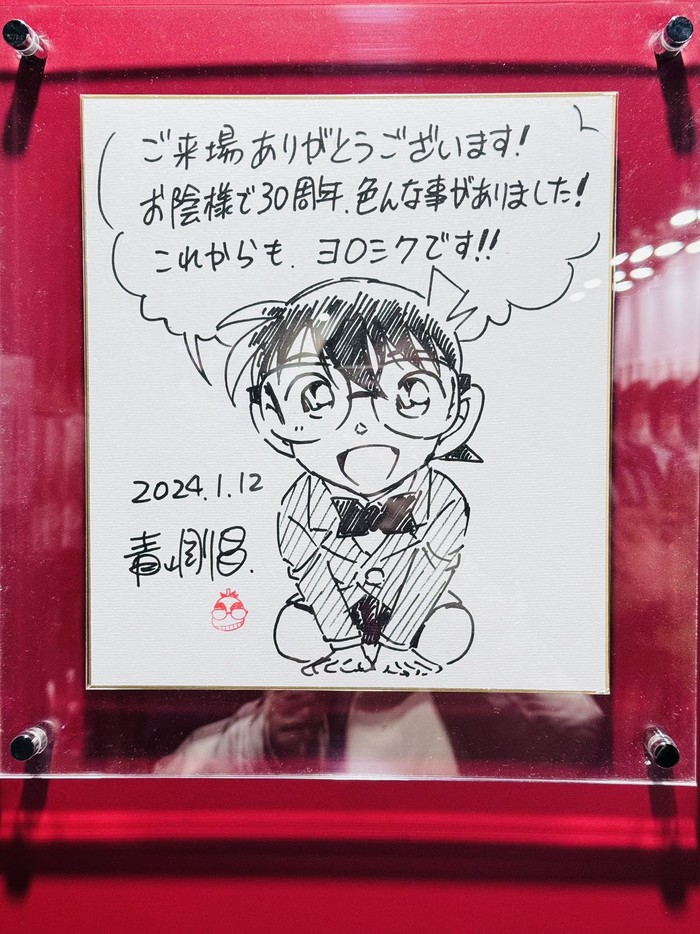 ご来場ありがとうございます!
お陰様で30周年、色んな事がありました!
これからも、ヨロシクです!!
2024.1.12
青山剛昌.